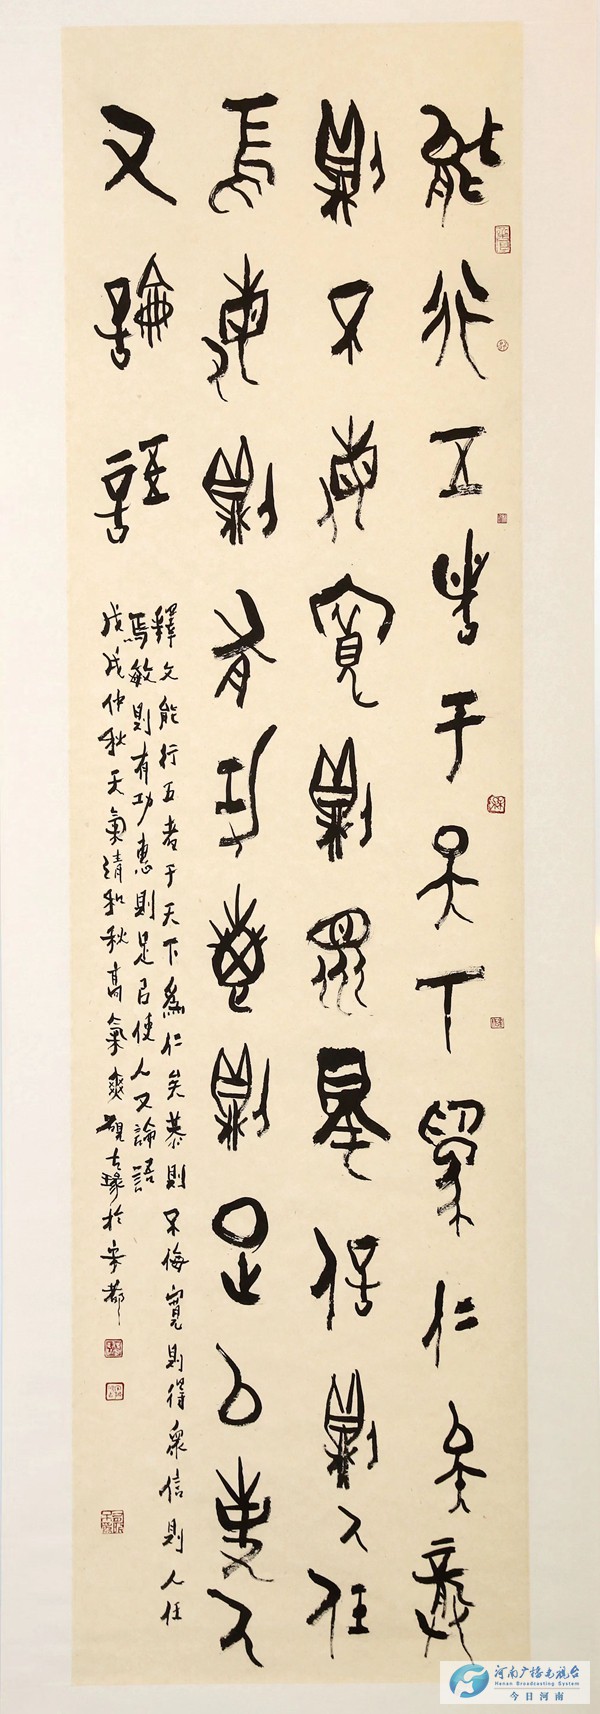 能行五者于天下為仁矣龏
則不悔寬則得眾信則人任
焉敏則有功惠則足以使人
又論語
釋文能行五者于天下為仁矣恭則不悔寬則得眾信則人任
焉敏則有功惠則足以使人又論語
戊戌仲秋天氣清和秋高氣爽於宋都
河南广播电视台
Henan Broadcasting System
今日河南